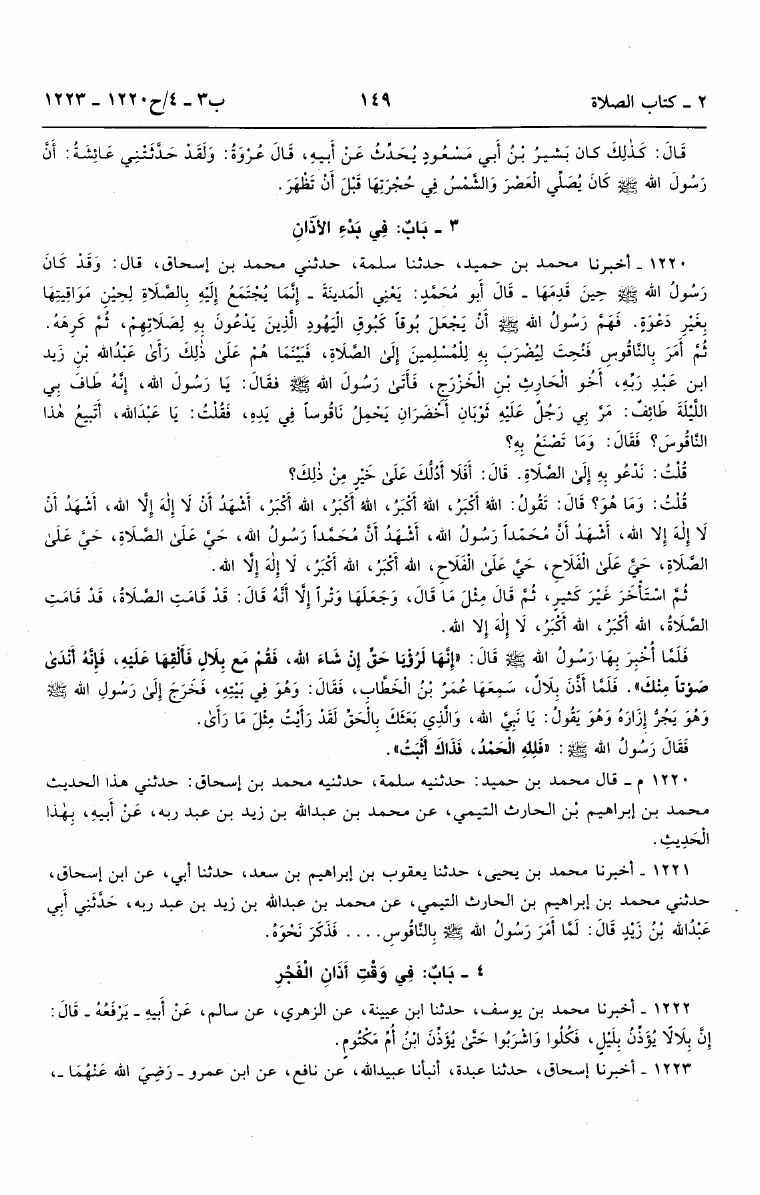 ٢ ـ كتاب الصلاة ١٤٩ ب٣ ـ ٤/ح١٢٢٠ ـ ١٢٢٣
قَالَ: كَذٰلِكَ كان بَشيرُ بْنُ أبي مَسْعُودٍ يُحَدِّثُ عَنْ أبيهِ، قَالَ عُرْوَةُ: وَلَقَدْ حَدَّثَتْنِي عَائِشَةُ: أَنَّ
رَسُولَ الله ﷺ كَانَ يُصَلِّي الْعَصْرَ وَالشَّمْسُ فِي حُجْرَتِهَا قَبْلَ أَنْ تَظْهَرَ.
٣ ـ بَابٌ: فِي بَدْءِ الأَذَانِ
١٢٢٠ ـ أخبرنا محمد بن حميد، حدثنا سلمة، حدثني محمد بن إسحاق، قال: وَقَدْ كَانَ
رَسُولُ الله ﷺ حِينَ قَدِمَهَا ـ قَالَ أَبو مُحَمَّدٍ: يَعْنِي الْمَدينَةَ ـ إِنَّمَا يُجْتَمَعُ إِلَيْهِ بِالصَّلَاةِ لِحِيْنِ مَوَاقِيتِهَا
بِغَيْرِ دَعْوَةٍ. فَهَمَّ رَسُولُ الله ﷺ أَنْ يَجْعَلَ بُوقاً كَبُوقِ الْيَهُودِ الَّذِينَ يَدْعُونَ بِهِ لِصَلَاتِهِمْ، ثُمَّ كَرِهَهُ.
ثُمَّ أَمَرَ بِالنَّاقُوسِ فَنُحِتَ لِيُضْرَبَ بِهِ لِلْمُسْلِمِينَ إِلَى الصَّلَاةِ، فَبَيْنَمَا هُمْ عَلَىٰ ذٰلِكَ رَأَىٰ عَبْدُالله بْنِ زَيد
ابن عَبْدِ رَبِّهِ، أَخُو الْحَارِثِ بْنِ الْخَزْرَجِ، فَأَتَىٰ رَسُولَ الله ﷺ فقَالَ: يَا رَسُولَ الله، إِنَّهُ طَافَ بِي
اللَّيْلَةَ طَائِفٌ: مَرَّ بِي رَجُلٌ عَلَيْهِ ثَوْبَانِ أَخْضَرَانِ يَحْمِلُ نَاقُوساً فِي يَدِهِ، فَقُلْتُ: يَا عَبْدَالله، أَتَبِيعُ هٰذا
النَّاقُوسَ؟ فَقَالَ: وَمَا تَصْنَعُ بِهِ؟
قُلْتُ: نَدْعُو بِهِ إِلَى الصَّلَاةِ. قَالَ: أَفَلَا أَدُلُّكَ عَلَىٰ خَيْرٍ مِنْ ذٰلِكَ؟
قُلْتُ: وَمَا هُوَ؟ قَالَ: تَقُولُ: اللهُ أَكْبَرُ، اللهُ أَكْبَرُ، اللهُ أَكْبَرُ، الله أَكْبَرُ، أَشْهَدُ أَنْ لَا إِلٰهَ إِلَّا الله، أَشْهَدُ أَنْ
لَا إِلٰهَ إِلا الله، أَشْهَدُ أَنَّ مُحَمّداً رَسُولُ الله، أَشْهَدُ أَنَّ مُحَمَّداً رَسُولُ الله، حَيَّ عَلَىٰ الصَّلَاةِ، حَيَّ عَلَىٰ
الصَّلَاةِ، حَيَّ عَلَىٰ الْفَلَاحِ، حَيَّ عَلَىٰ الْفَلَاحِ، الله أَكْبَرُ، الله أَكْبَرُ، لَا إِلٰهَ إِلَّا الله.
ثُمَّ اسْتَأْخَرَ غَيْرَ كَثيرٍ، ثُمَّ قَالَ مِثْلَ مَا قَالَ، وَجَعَلَهَا وَتْراً إِلَّا أَنَّهُ قَالَ: قَدْ قَامَتِ الصَّلَاةُ، قَدْ قَامَتِ
الصَّلَاةُ، الله أَكْبَرُ، الله أَكْبَرُ، لَا إِلٰهَ إِلا الله.
فَلَمَّا أُخْبِرَ بِهَا رَسُولُ الله ﷺ قَالَ: «إِنَّهَا لَرُؤْيَا حَقٍّ إِنْ شَاءَ الله، فَقُمْ مَعَ بِلَالٍ فَأَلْقِهَا عَلَيْهِ، فَإِنَّهُ أَنْدَىٰ
صَوْتاً مِنْكَ». فَلَمَّا أَذَّنَ بِلَالٌ، سَمِعَهَا عُمَرُ بْنُ الْخَطَّابِ، فَقَالَ: وَهُوَ فِي بَيْتِهِ، فَخَرَجَ إِلَىٰ رَسُولِ الله ﷺ
وَهُوَ يَجُرُّ إِزَارَهُ وَهُوَ يَقُولُ: يَا نَبِيَّ الله، وَالَّذِي بَعَثَكَ بِالْحَقِّ لَقَدْ رَأَيْتُ مِثْلَ مَا رَأَىٰ.
فَقَالَ رَسُولُ الله ﷺ: «فَلِلهِ الْحَمْدُ، فَذَاكَ أَثْبَتُ».
١٢٢٠ م ـ قال محمد بن حميد: حدثنيه سلمة، حدثنيه محمد بن إسحاق: حدثني هذا الحديث
محمد بن إبراهيم بْن الحارث التيمي، عن محمد بن عبدالله بن زيد بن عبد ربه، عَنْ أَبيهِ، بِهٰذا
الْحَدِيثِ.
١٢٢١ ـ أخبرنا محمد بن يحيى، حدثنا يعقوب بن إبراهيم بن سعد، حدثنا أبي، عن ابن إسحاق،
حدثني محمد بن إبراهيم بن الحارث التيمي، عن محمد بن عبدالله بن زيد بن عبد ربه، حَدَّثَنِي أَبِي
عَبْدُالله بْنُ زَيْدٍ قَالَ: لَمَّا أَمَرَ رَسُولُ الله ﷺ بِالنَّاقُوسِ.... فَذَكَرَ نَحْوَهُ.
٤ ـ بَابٌ: فِي وَقْتِ أَذَانِ الْفَجْرِ
١٢٢٢ ـ أخبرنا محمد بن يوسف، حدثنا ابن عيينة، عن الزهري، عن سالم، عَنْ أَبيهِ ـ يَرْفَعُهُ ـ قَالَ:
إِنَّ بِلَالًا يُؤَذِّنُ بِلَيْلٍ، فَكُلُوا وَاشْرَبُوا حَتَّىٰ يُؤَذِّنَ ابْنُ أُمِّ مَكْتُومٍ.
١٢٢٣ ـ أخبرنا إسحاق، حدثنا عبدة، أنبأنا عبيدالله، عن نافع، عن ابن عمرو ـ رَضِيَ الله عَنْهُمَا ـ،